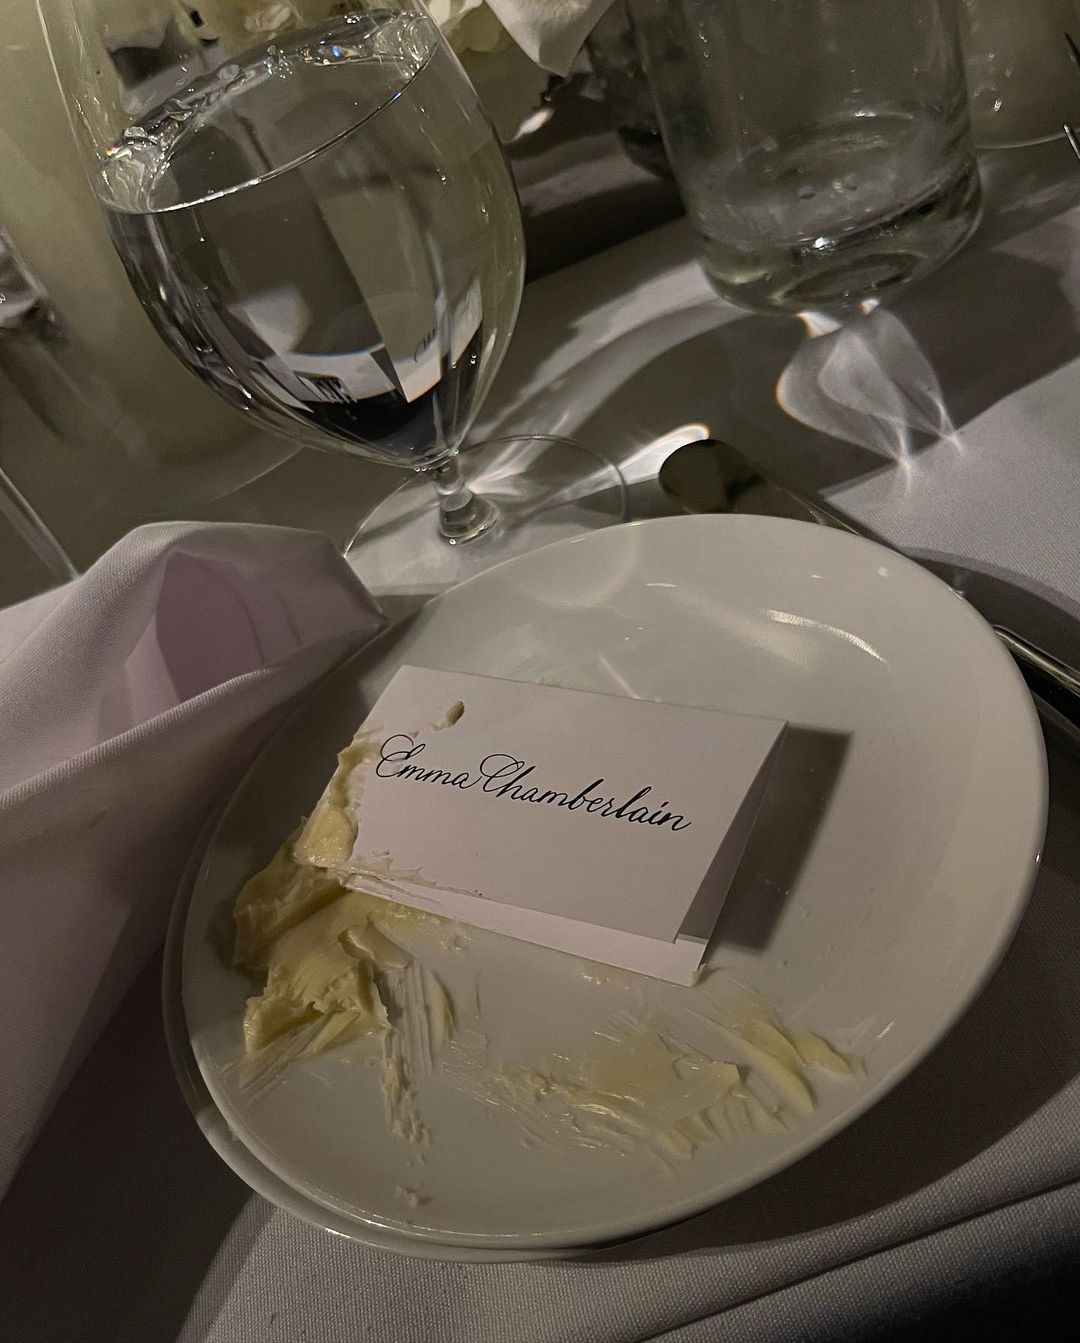 Emma Chamberlain